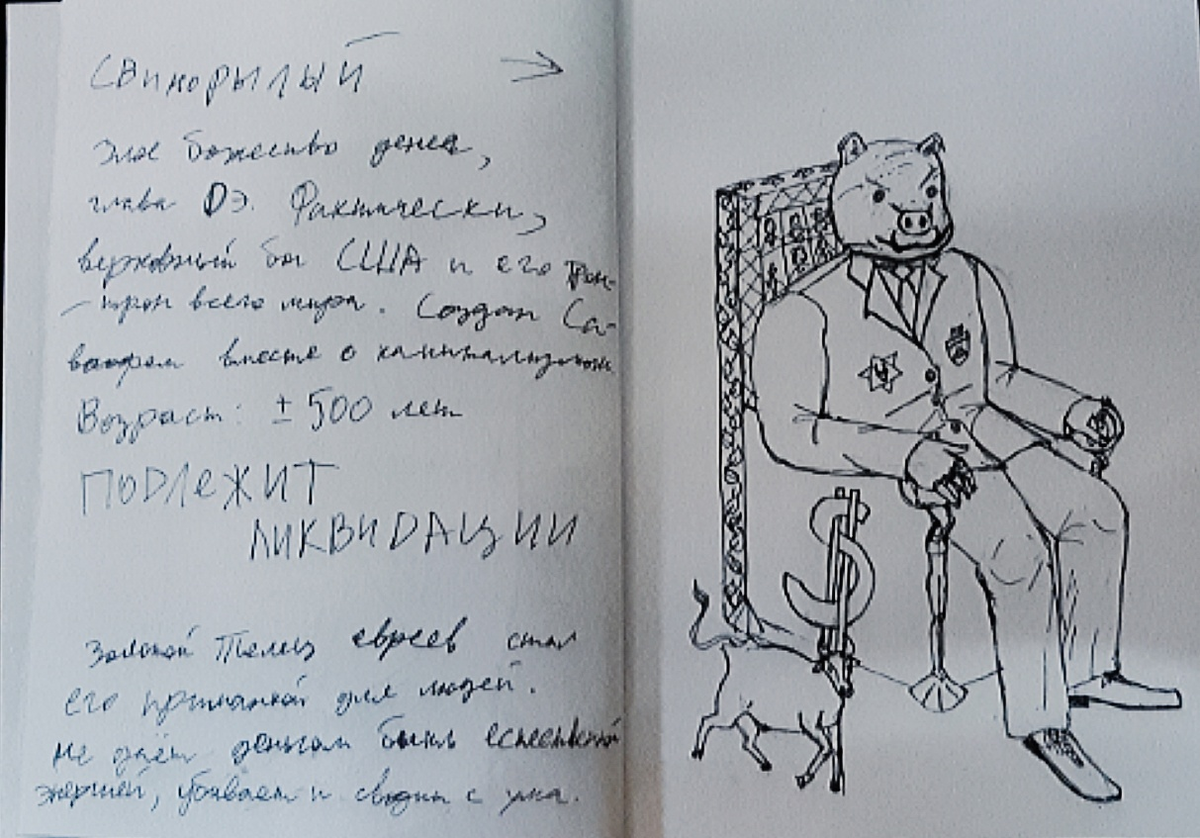 СВИНОРЫЛЫЙ
Злое божество денег,
глава ДЭ. Фактически,
верховный бог США и его трон-
- трон всего мира. Создан Са-
вместе с капитализмом.
Возраст: ± 500 лет
ПОДЛЕЖИТ
ЛИКВИДАЦИИ
Золотой Телец евреев стал
его приманкой для людей.
Не даёт деньгам быть естественной
энергией, убивает и сводит с ума.